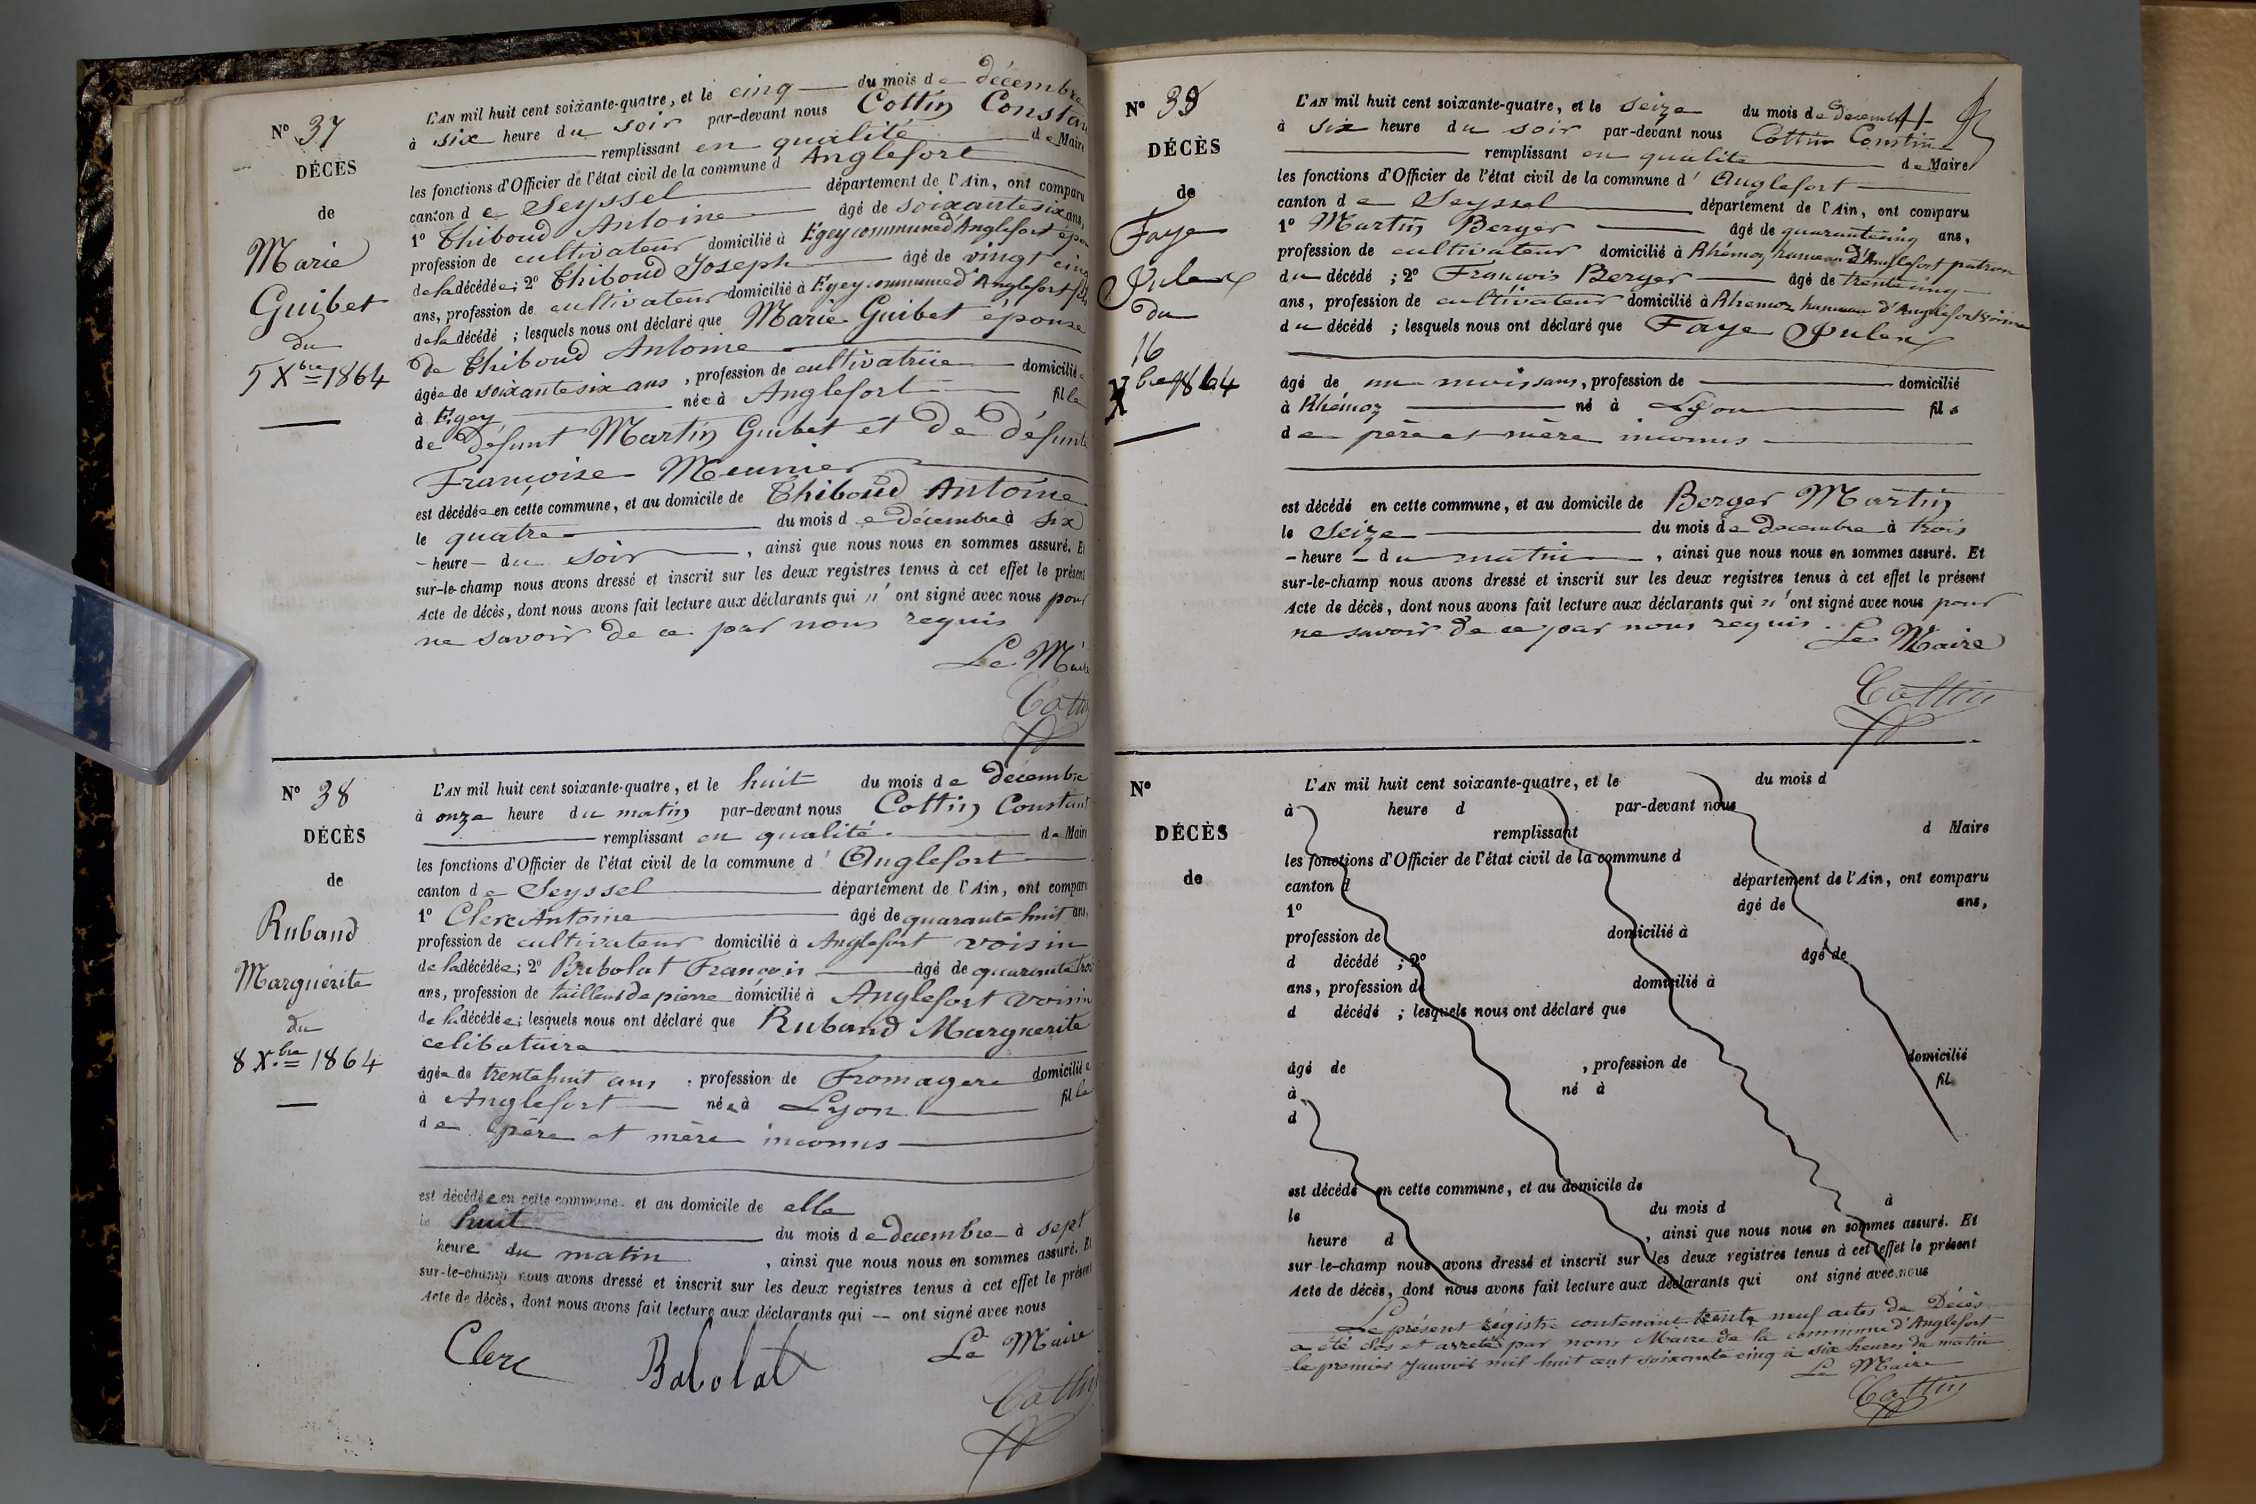 N° 37
DÉCÈS
de
Marie
Guibet
du
5 Xbre 1864
L'AN mil huit cent soixante-quatre, et le cinq du mois de décembre
à six heure du soir par-devant nous Cottin Constan
remplissant en qualité de Maire
les fonctions d'Officier de l'état civil de la commune d Anglefort
canton de Seyssel département de l'Ain, ont comparu
1° Thiboud Antoine âgé de soixante six ans,
profession de cultivateur domicilié à Egey commune d'Anglefort épou
de la décédée; 2° Thiboud Joseph âgé de vingt cinq
ans, profession de cultivateur domicilié à Egey commune d'Anglefort fils
de la décédé ; lesquels nous ont déclaré que Marie Guibet épouse
de Thiboud Antoine
âgée de soixante six ans, profession de cultivatrice domiciliée
à Egey née à Anglefort fille
de Défunt Martin Guibet et de Défunte
Françoise Meunier
est décédée en cette commune, et au domicile de Thiboud Antoine
le quatre du mois de décembre à six
- heure - du soir, ainsi que nous nous en sommes assuré. Et
sur-le-champ nous avons dressé et inscrit sur les deux registres tenus à cet effet le présent
Acte de décès, dont nous avons fait lecture aux déclarants qui n'ont signé avec nous pour
ne savoir de ce par nous requis
Le Maire
Cottin
N° 38
DÉCÈS
de
Ruband
Marguérite
du
8 Xbre 1864
L'AN mil huit cent soixante-quatre, et le huit du mois de décembre
à onze heure du matin par-devant nous Cottin Constant
remplissant en qualité de Maire
les fonctions d'Officier de l'état civil de la commune d' Anglefort
canton de Seyssel département de l'Ain, ont comparu
1° Clerc Antoine âgé de quarante huit ans,
profession de cultivateur domicilié à Anglefort voisin
de la décédée; 2° Babolat François âgé de quarante trois
ans, profession de tailleur de pierre domicilié à Anglefort voisin
de la décédée; lesquels nous ont déclaré que Ruband Marguerite
celibataire
âgée de trente huit ans, profession de Fromagere domiciliée
à Anglefort née à Lyon fille
de père et mère inconnus
est décédée en cette commune, et au domicile de elle
le huit du mois de decembre à sept
heure du matin, ainsi que nous nous en sommes assuré. Et
sur-le-champ nous avons dressé et inscrit sur les deux registres tenus à cet effet le présent
Acte de décès, dont nous avons fait lecture aux déclarants qui — ont signé avec nous
Clerc Babolat Le Maire
Cottin
N° 39
DÉCÈS
de
Faye
Jules
du
16
Xbre 1864
L'AN mil huit cent soixante-quatre, et le seize du mois de decembre
à six heure du soir par-devant nous Cottin Constant
remplissant en qualité de Maire
les fonctions d'Officier de l'état civil de la commune d' Anglefort
canton de Seyssel département de l'Ain, ont comparu
1° Martin Berger âgé de quarante cinq ans,
profession de cultivateur domicilié à Rhémoz hameau d'Anglefort patron
du décédé ; 2° François Berger âgé de trente cinq
ans, profession de cultivateur domicilié à Rhemoz hameau d'Anglefort voisin
du décédé ; lesquels nous ont déclaré que Faye Jules
âgé de un mois ans, profession de domicilié
à Rhémoz né à Lyon fils
de père et mère inconnus
est décédé en cette commune, et au domicile de Berger Martin
le Seize du mois de decembre à trois
- heure - du matin, ainsi que nous nous en sommes assuré. Et
sur-le-champ nous avons dressé et inscrit sur les deux registres tenus à cet effet le présent
Acte de décès, dont nous avons fait lecture aux déclarants qui n'ont signé avec nous pour
ne savoir de ce par nous requis.
Le Maire
Cottin
N°
DÉCÈS
de
L'AN mil huit cent soixante-quatre, et le du mois d
à heure d par-devant nous
remplissant d Maire
les fonctions d'Officier de l'état civil de la commune d
canton d département de l'Ain, ont comparu
1° âgé de ans,
profession de domicilié à
d décédé ; 2° âgé de
ans, profession de domicilié à
d décédé ; lesquels nous ont déclaré que
âgé de , profession de domicilié
à né à fil
d
est décédé en cette commune, et au domicile de
le du mois d à
heure d , ainsi que nous nous en sommes assuré. Et
sur-le-champ nous avons dressé et inscrit sur les deux registres tenus à cet effet le présent
Acte de décès, dont nous avons fait lecture aux déclarants qui ont signé avec nous
Le présent régistre contenant trente neuf actes de Décès
a été clos et arreté par nous Maire de la commune d'Anglefort
le premier Janvier mil huit cent soixante cinq à six heures du matin
Le Maire
Cottin